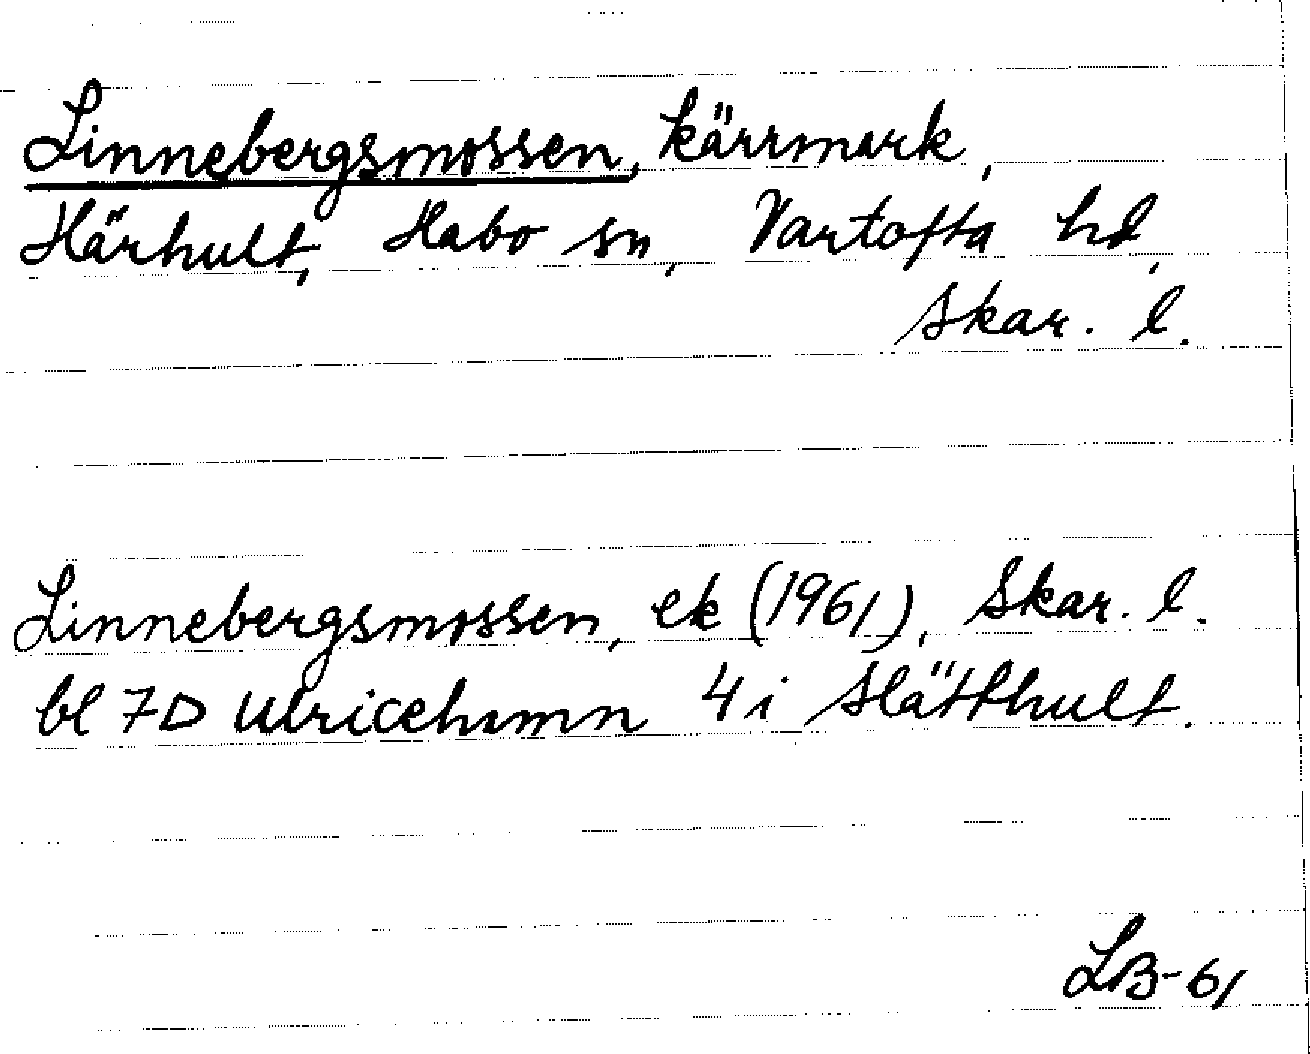 Linnebergsmossen, kärrmark,
Härhult, Habo sn, Vartofta hd,
Skar. l.
Linnebergsmossen, ek (1961), Skar. l.
bl 7D Ulricehamn 4 i Slätthult.
LB-61